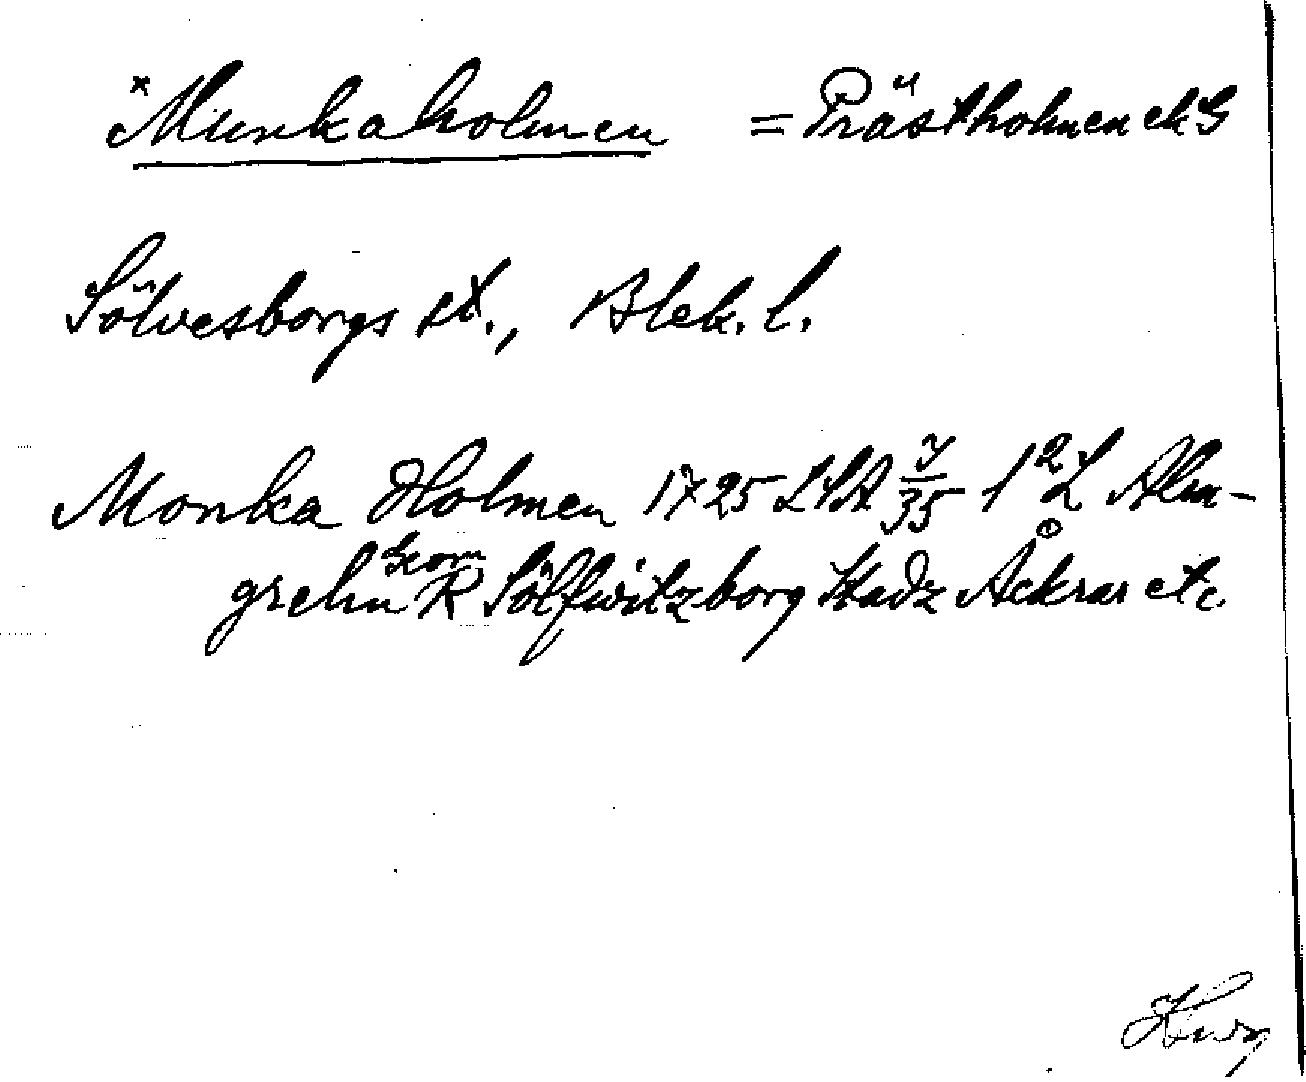 *Munkaholmen = Prästholmen ek G
Sölvesborgs st., Blek. l.
Monka Holmen 1725 LSA 7/35 1²L Alm-
grehn Geom R Sölfwitzborg Stadz Åckrar etc